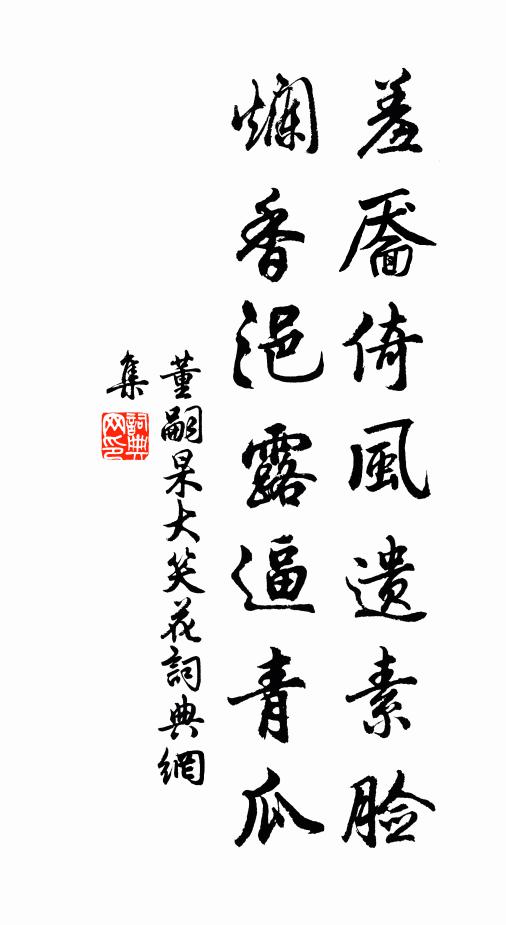 羞靨倚風遺素脸
爛香浥露逼青瓜
董嗣杲大笑花詞典網
集
詞典网印